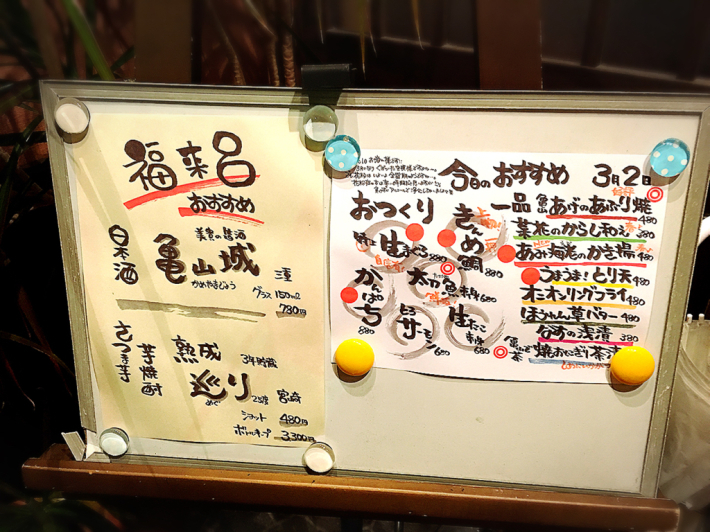 福来呂
おすすめ
日本酒
美食の隠酒
亀山城
かめやまじょう
グラス 150ml
780円
さつま芋
芋焼酎
熟成
3年貯蔵
巡り
めぐ
25度
宮崎
ショット 480円
ボトルキープ 3,300円
今日のおすすめ 3月2日
おつくり
生さば 880
きんめ鯛 880
かんぱち 880
太刀魚 680
とろサーモン 680
生たこ 680
一品
亀山あげのあぶり焼 480
菜花のからし和え 480
あみ海老のかき揚 480
うまうま!とり天 480
オニオンリングフライ 480
ほうれん草バター 480
なすの浅漬 380
焼おにぎり茶漬 480